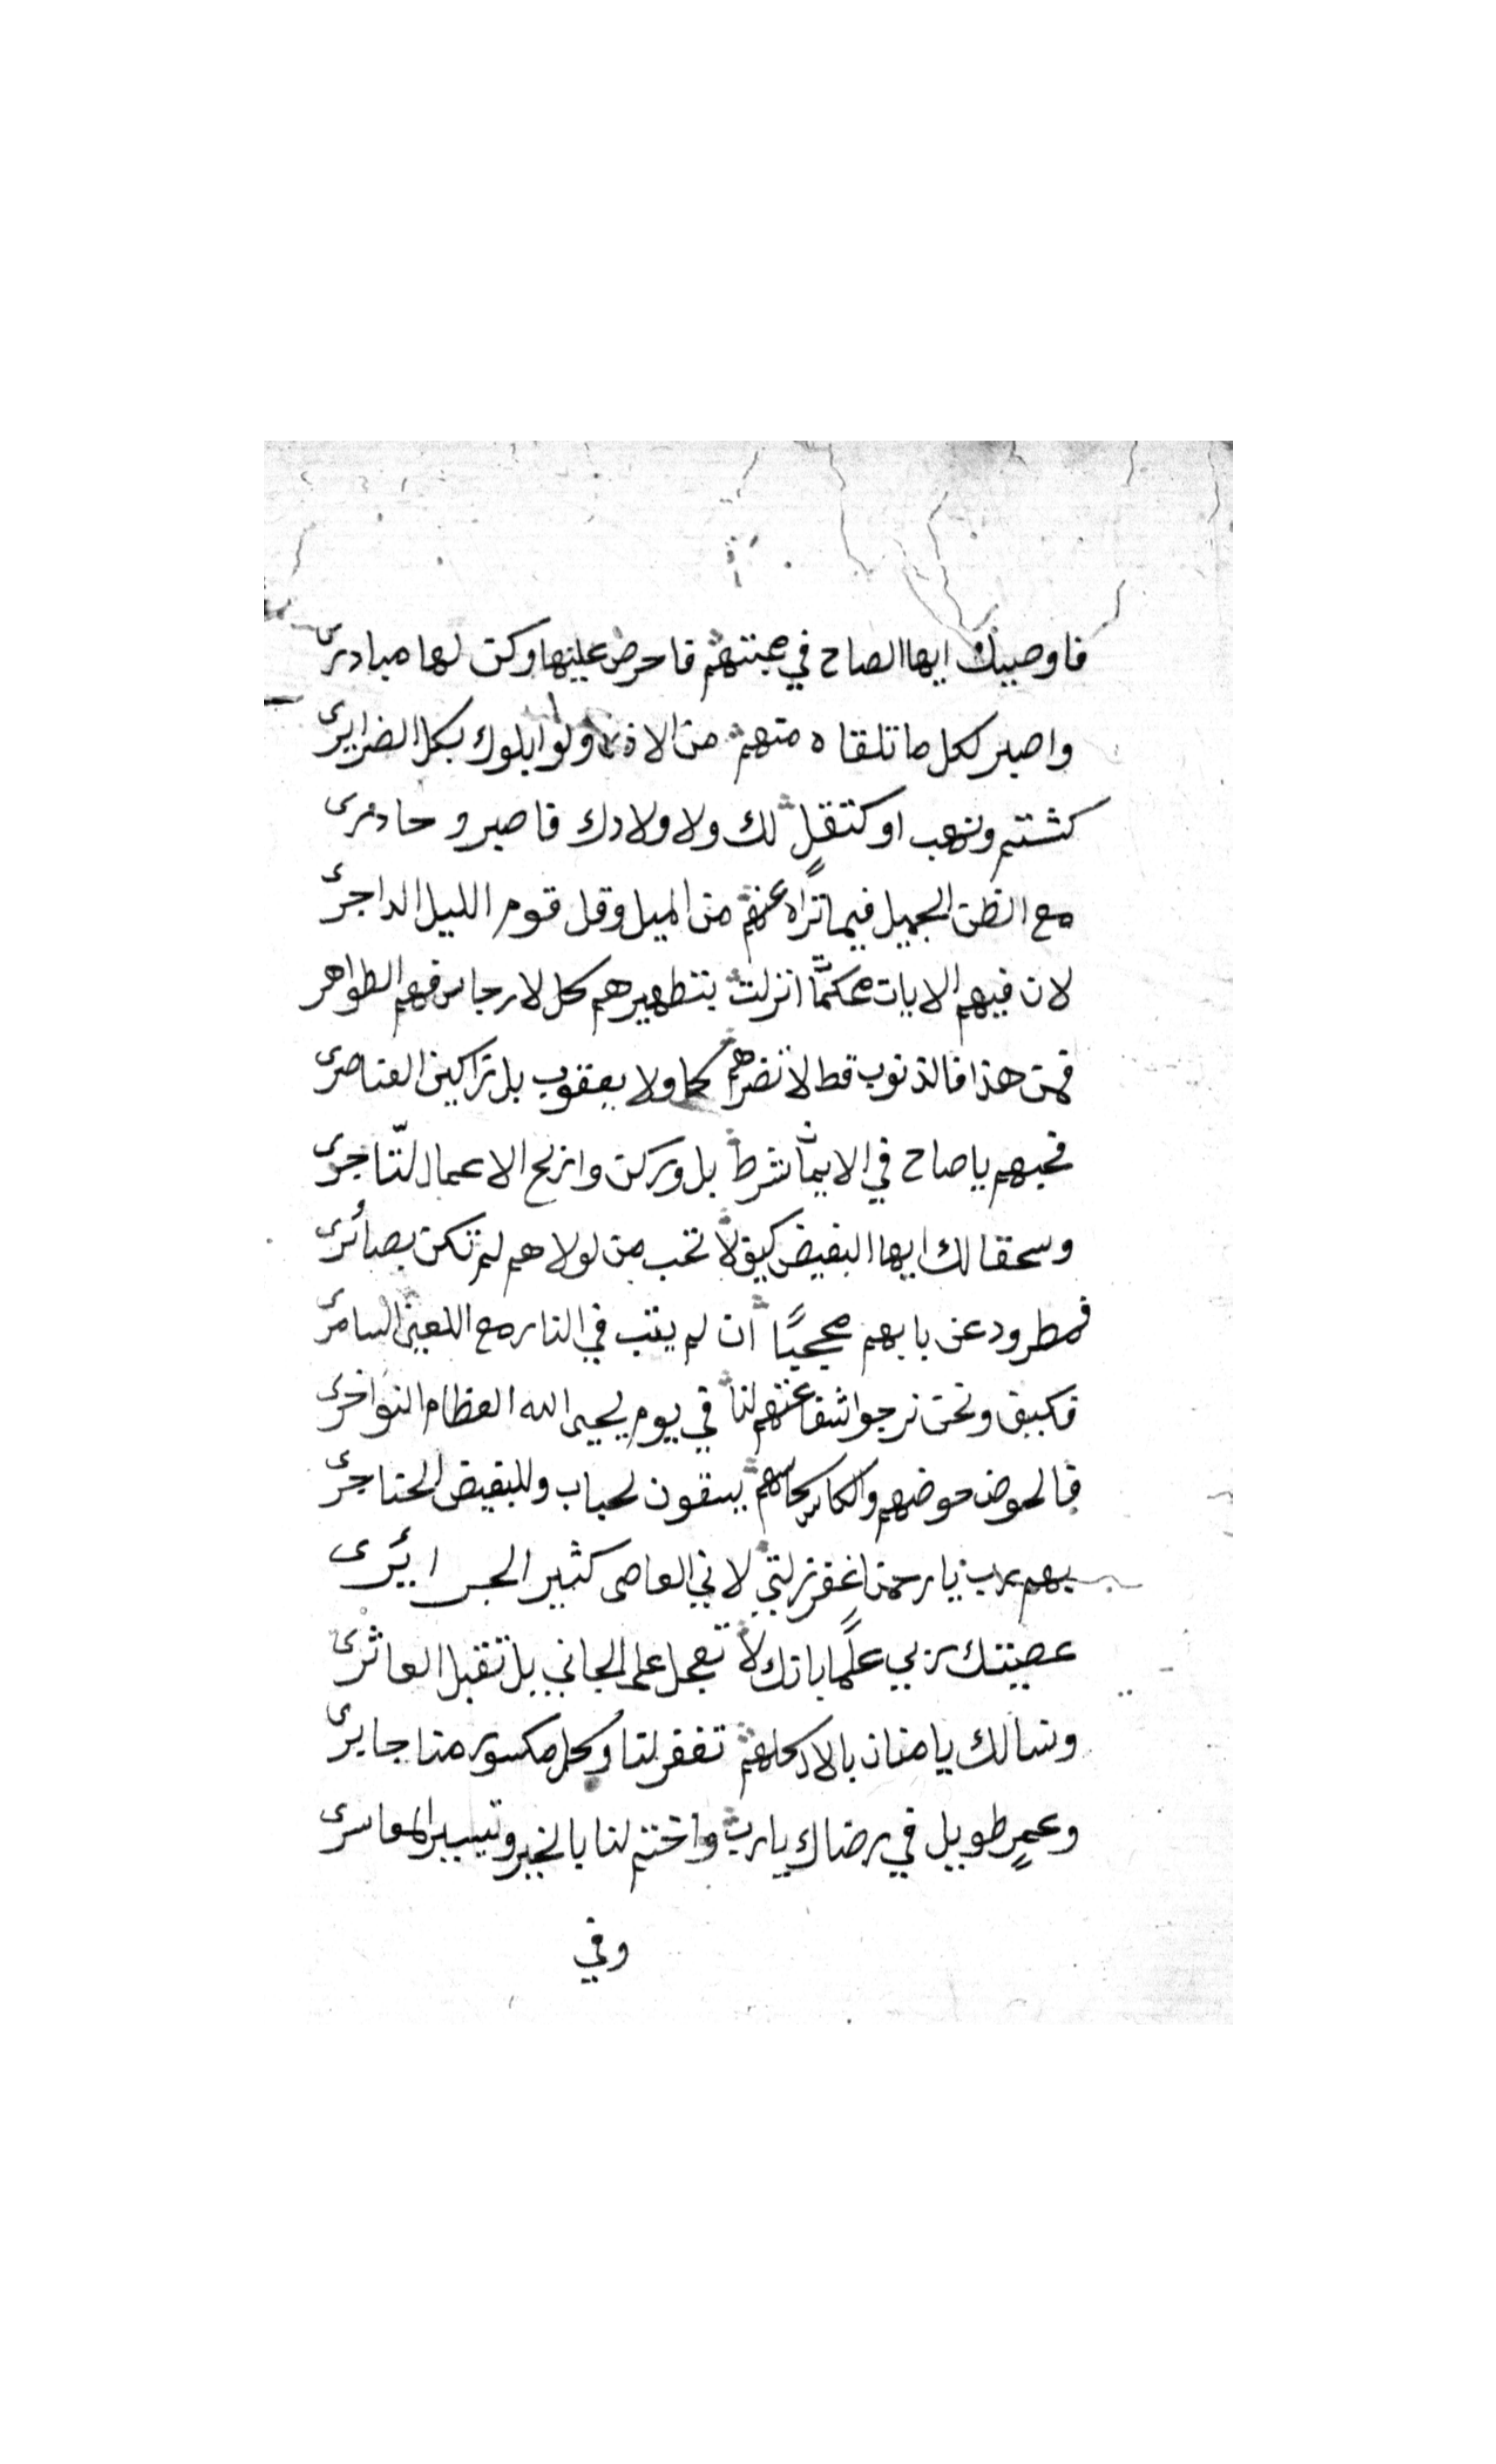 فاوصيك ايها الصاح في محبتهم فاحرص عليها وكن لها مبادرى
واصبر لكل ما تلقاه منهم من الاذى ولو ابلوك بكل الضرايرى
كشتم ونهب او كتقلٍ لك ولاولادك فاصبر وحاذرى
مع الظن الجميل فيما تراه عنهم من الميل وقل قوم الليل الداجرى
لان فيهم الايات محكمًا انزلت بتطهيرهم كل لارجاس فهم الطواهر
فمن هذا فالذنوب قط لا تضرهم كما ولا يعقوب بل تراكين العناصرى
فحبهم ياصاح في الايمان شرط بل وركن واربح الاعمال لتّاجرى
وسحقا لك ايها البغيض كيف لا تحب من لولاهم لم تكن بصائرى
فمطرود عن بابهم محجبًا ان لم يتب في النار مع اللعين السامرى
فكيف ونحن نرجوا شفاعتهم لنا في يوم يحيى الله العظام النواخرى
فالحوض حوضهم والكاس كاسهم يسقون لحباب وللبغيض الحناجرى
بهم يرب يا رحمن اغفر زلتي لاني العاصى كثير الجرايرى
عصيتك ربي علمًا بانك لا تعجل على الجاني بل تقبل العاثرى
ونسالك يا منان بالال كلهم تغفر لنا وكل مكسور منا جابرى
وعمرٍ طويل في رضاك يارب واختم لنا بالخير وتيسير المعاسرى
وفي